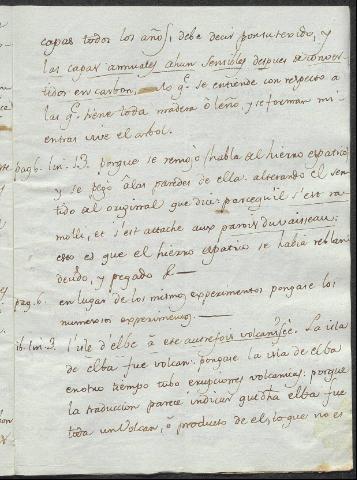 capas todos los años, debe decir por su texido, y
las capas annuales ahun sensibles despues de conver-
tidos en carbon, lo q.e se entiende con respecto a
las q.e tiene toda madera ò leño, y se forman mi-
entras vive el arbol.
pag 6. lin. 13. porque se remojó (habla del hierro espatico
y se pegó à las paredes de ella. alterando el sen-
tido del original que dice: parcequ'il s'est ra-
molli, et s'est attaché aux parois du vaisseau:
esto es que el hierro espatico se habia reblan-
decido, y pegado &
pag. 6. en lugar de los mismos experimentos pongase los
numerosos experimentos.
ib. lin. 3. l'isle d'elbe a été autrefois volcanisée. La isla
de elba fue volcan: pongase. la isla de elba
en otro tiempo tubo erupciones volcanicas: porque
la traduccion parece indicar que dha elba fue
toda un Volcan, ò producto de el, lo que no es